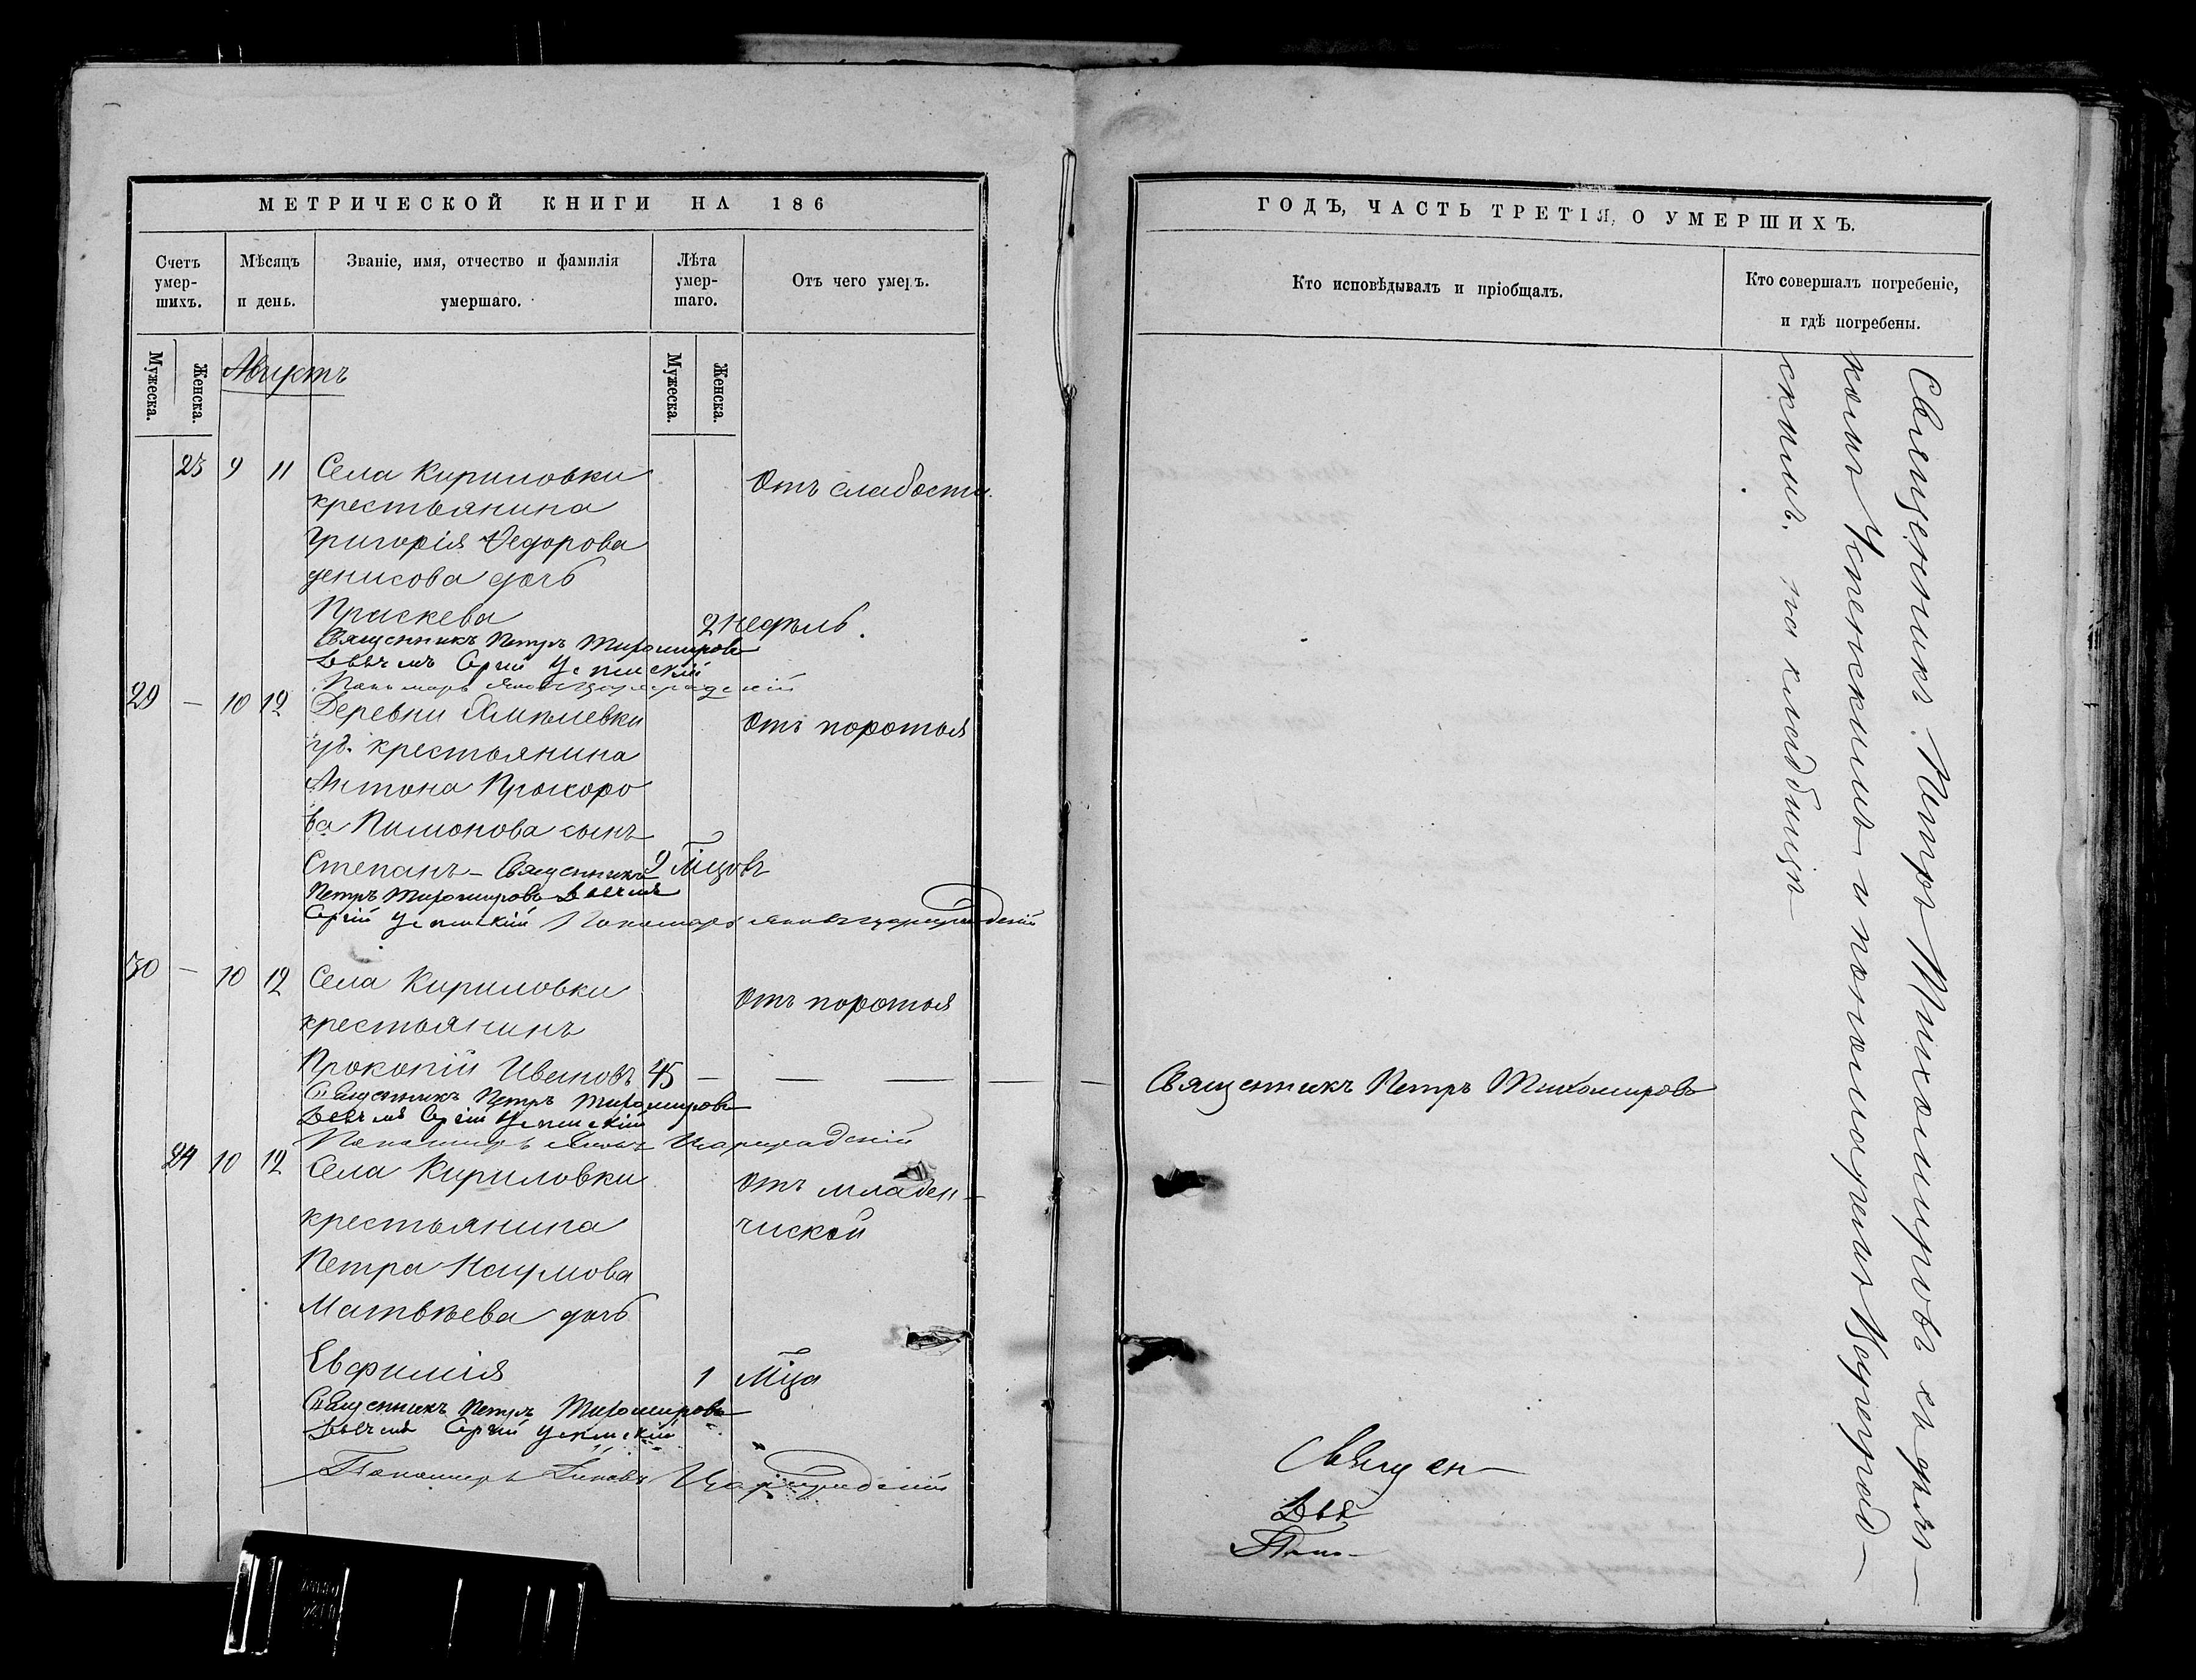 МЕТРИЧЕСКОЙ КНИГИ НА 186
Счетъ умер-шихъ.
Мѣсяцъ и день.
Званіе, имя, отчество и фамилія умершаго.
Лѣта умер-шаго.
Отъ чего умеръ.
Мужеска.
Женска.
Августъ
Мужеска.
Женска.
23 9 11 Села Кириловки
Отъ слабости.
крестьянина
Григорія Ѳедорова
Денисова дочь
Праскева
2 недѣль.
Священникъ Петръ Тихомировъ
Дьячекъ Сергій Успенскій
Пономарь Яковъ Цареградскій
29 — 10 12 Деревни
Отъ поротья
крестьянина
Антона Прохоро
ва Пимонова сынъ
Степанъ — Священникъ 9 Мцовъ
Петръ Тихомировъ Дьячекъ
Сергій Успенскій Пономарь Яковъ Цареградскій
30 — 10 12 Села Кириловки
Отъ поротья
крестьянинъ
Прокопій Ивановъ 45 — — — — —
Священникъ Петръ Тихомировъ
Дьячекъ Сергій Успенскій
Пономарь Яковъ Цареградскій
24 10 12 Села Кириловки
Отъ младен-
ческой
крестьянина
Петра Наумова
Матвѣева дочь
Евфимія
1 Мца
Священникъ Петръ Тихомировъ
Дьячекъ Сергій Успенскій
Пономарь Іяковъ Цареградскій
ГОДЪ, ЧАСТЬ ТРЕТІЯ, О УМЕРШИХЪ.
Кто исповѣдывалъ и пріобщалъ.
Кто совершалъ погребеніе,
и гдѣ погребены.
Священникъ Петръ Тихомировъ
Священ—
Дья
Поно—
Священникъ Петръ Тихомировъ съ дьяч—
комъ Успенскимъ и пономаремъ Цареград—
скимъ. на кладбищѣ—